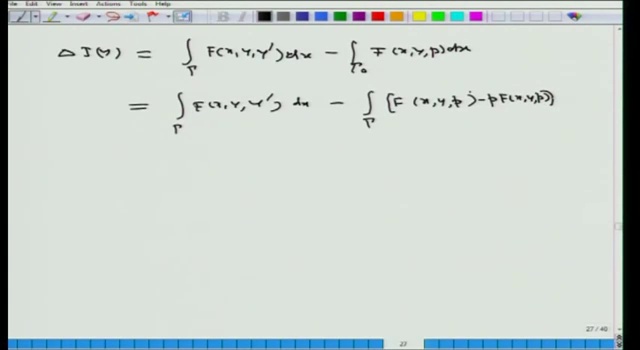 View Insert Actions Tools Help
Δ J(y) = ∫_Γ F(x, y, y')dx − ∫_Γ₀ F (x, y, p)dx
= ∫_Γ F(x, y, y') dx − ∫_Γ {F (x, y, p) − p F(x, y, p)}
27 / 40
27